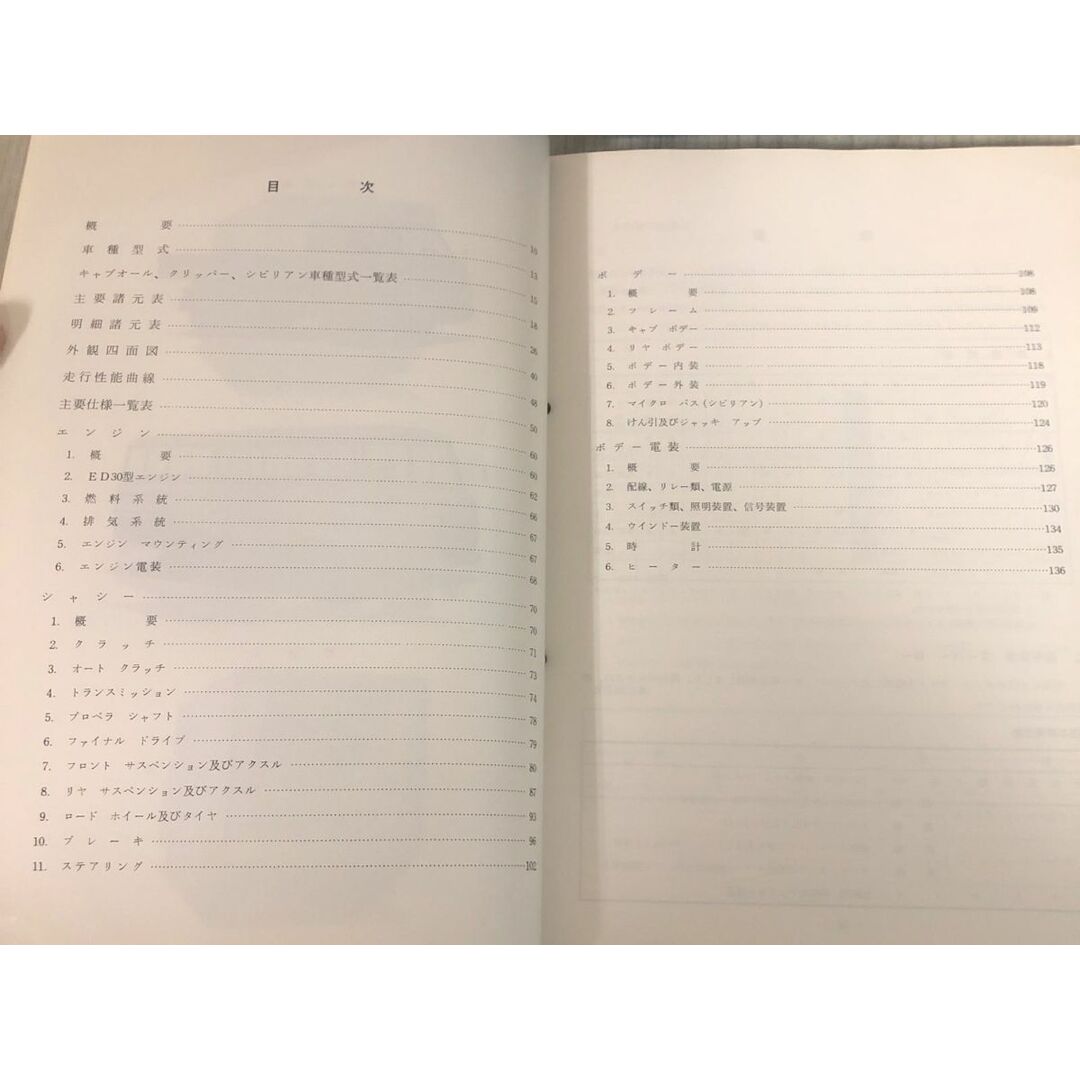 目次
概要 10
車種型式 13
キャブオール、クリッパー、シビリアン車種型式一覧表 15
主要諸元表 18
明細諸元表 26
外観四面図 40
走行性能曲線 48
主要仕様一覧表 50
エンジン 60
1. 概要 60
2. ED30型エンジン 62
3. 燃料系統 66
4. 排気系統 67
5. エンジン マウンティング 67
6. エンジン電装 68
シャシー 70
1. 概要 70
2. クラッチ 71
3. オート クラッチ 73
4. トランスミッション 74
5. プロペラ シャフト 78
6. ファイナル ドライブ 79
7. フロント サスペンション及びアクスル 80
8. リヤ サスペンション及びアクスル 87
9. ロード ホイール及びタイヤ 93
10. ブレーキ 96
11. ステアリング 102
ボデー 108
1. 概要 108
2. フレーム 109
3. キャブ ボデー 112
4. リヤ ボデー 113
5. ボデー内装 118
6. ボデー外装 119
7. マイクロ バス(シビリアン) 120
8. けん引及びジャッキ アップ 124
ボデー電装 126
1. 概要 126
2. 配線、リレー類、電源 127
3. スイッチ類、照明装置、信号装置 130
4. ウインドー装置 134
5. 時計 135
6. ヒーター 136